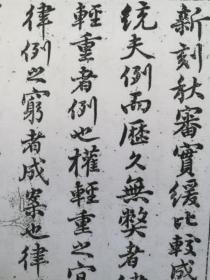 新刻秋審實緩比較成
統夫例而歷久無弊者
輕重者例也權輕重之宜
律例之窮者成案也律